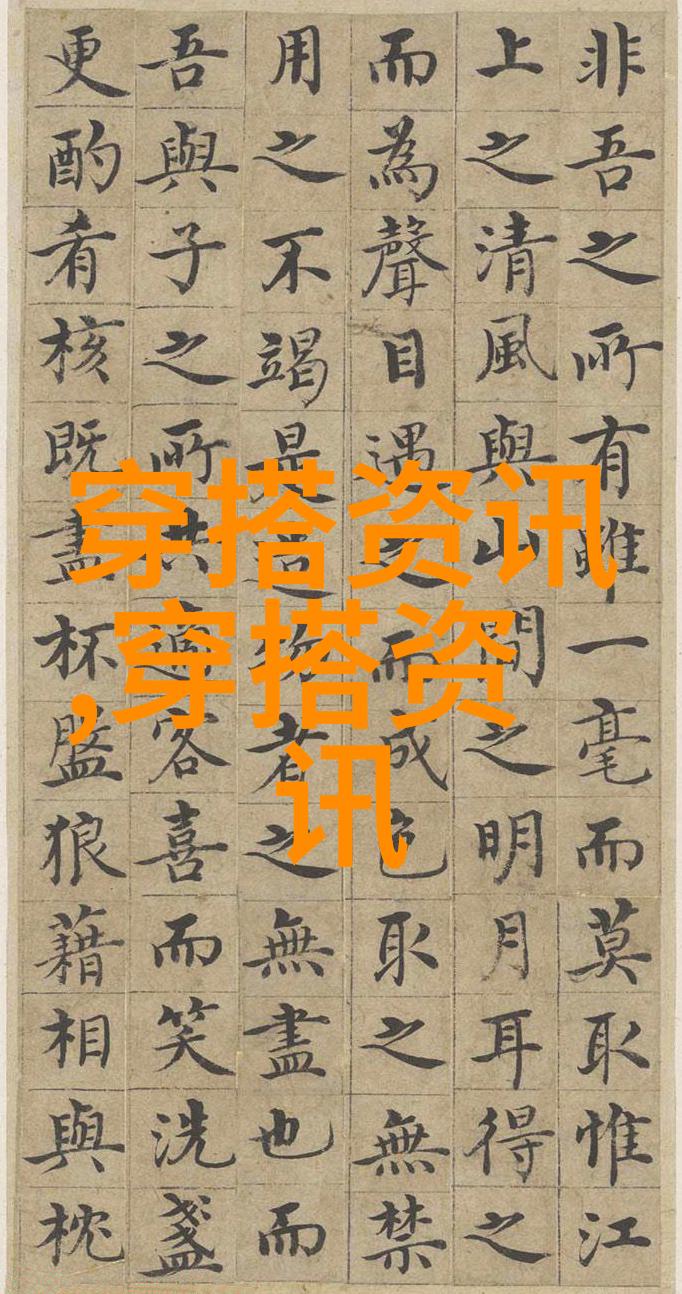 非吾之所有雖一毫而莫取惟江
上之清風與山間之明月耳得之
而為聲目遇之而成色取之無禁
用之不竭是造物者之無盡也而
吾與子之所共適客喜而笑洗盞
更酌肴核既盡杯盤狼藉相與枕
穿搭资讯
,穿搭资
讯